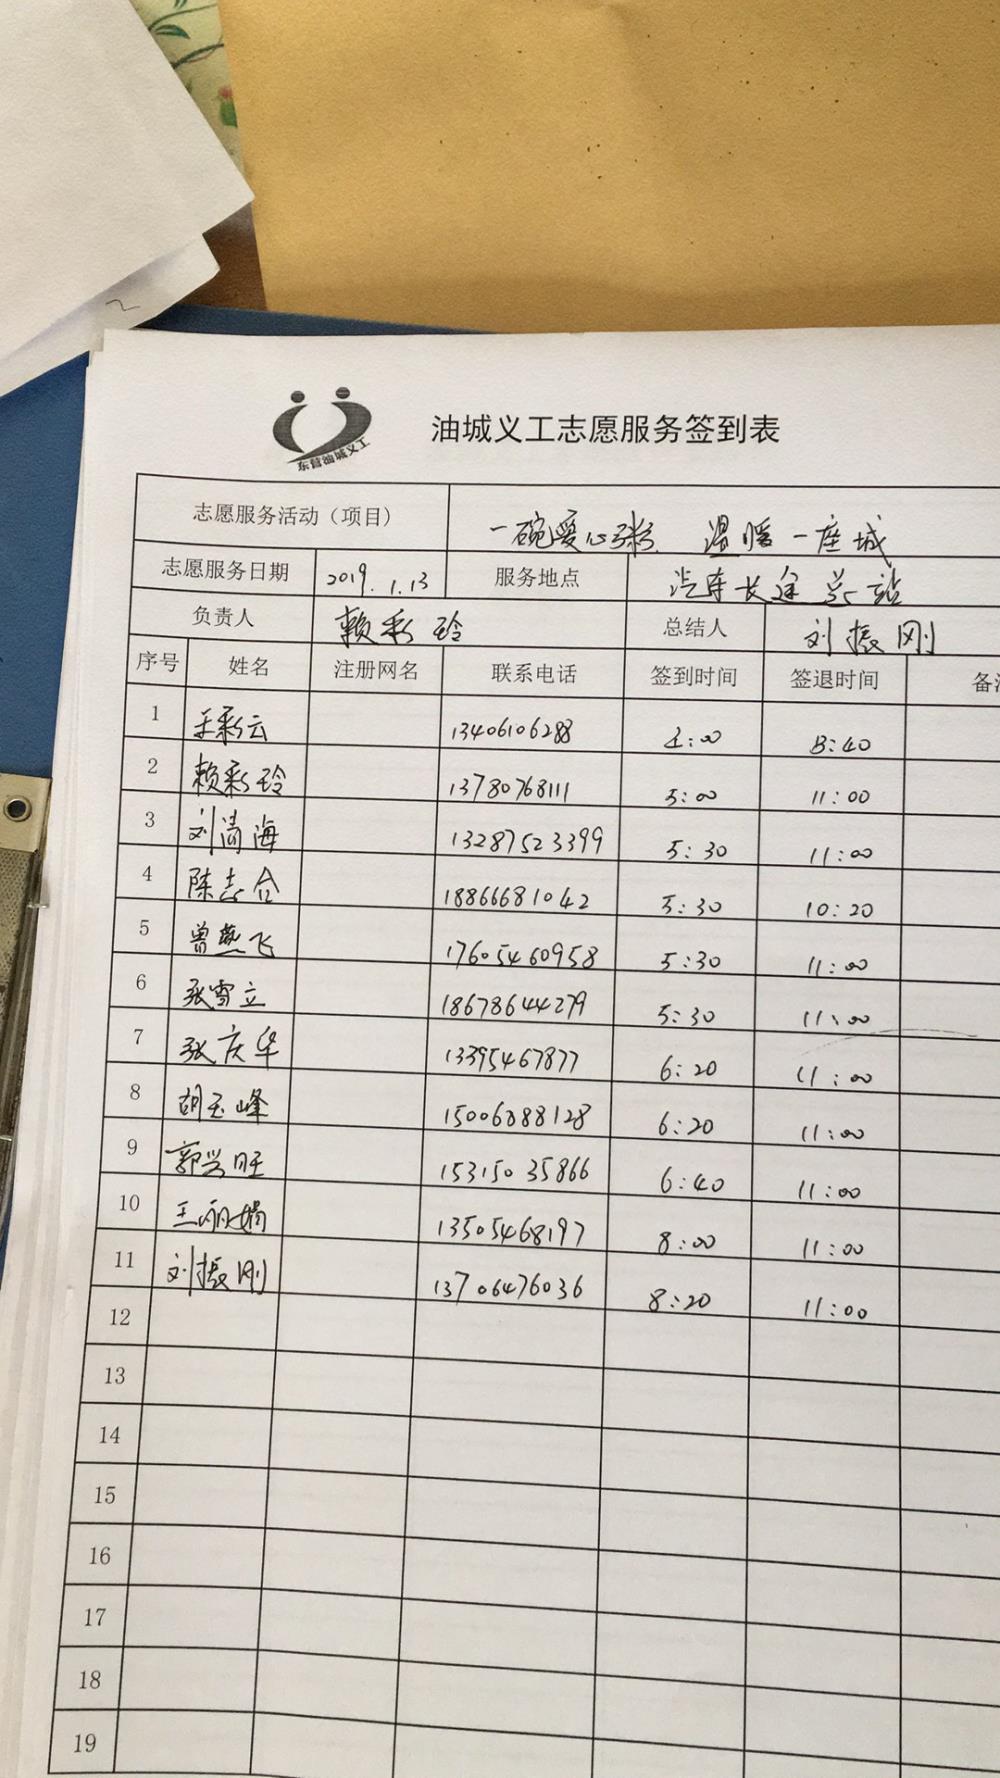 东营油城义工
油城义工志愿服务签到表
志愿服务活动（项目） 一碗爱心粥 温暖一座城
志愿服务日期 2019.1.13 服务地点 汽车长途总站
负责人 赖彩玲 总结人 刘振刚
序号 姓名 注册网名 联系电话 签到时间 签退时间
1 王彩云 13406106288 :00 8:40
2 赖彩玲 13780768111 5:00 11:00
3 刘清海 13287523399 5:30 11:00
4 陈志合 18866681042 5:30 10:20
5 曾燕飞 17605460958 5:30 11:00
6 张雪立 18678644279 5:30 11:00
7 张庆华 13395467877 6:20 11:00
8 胡玉峰 15006888128 6:20 11:00
9 郭兴旺 15315035866 6:40 11:00
10 王丽娟 13505468197 8:00 11:00
11 刘振刚 13706476036 8:20 11:00
12
13
14
15
16
17
18
19